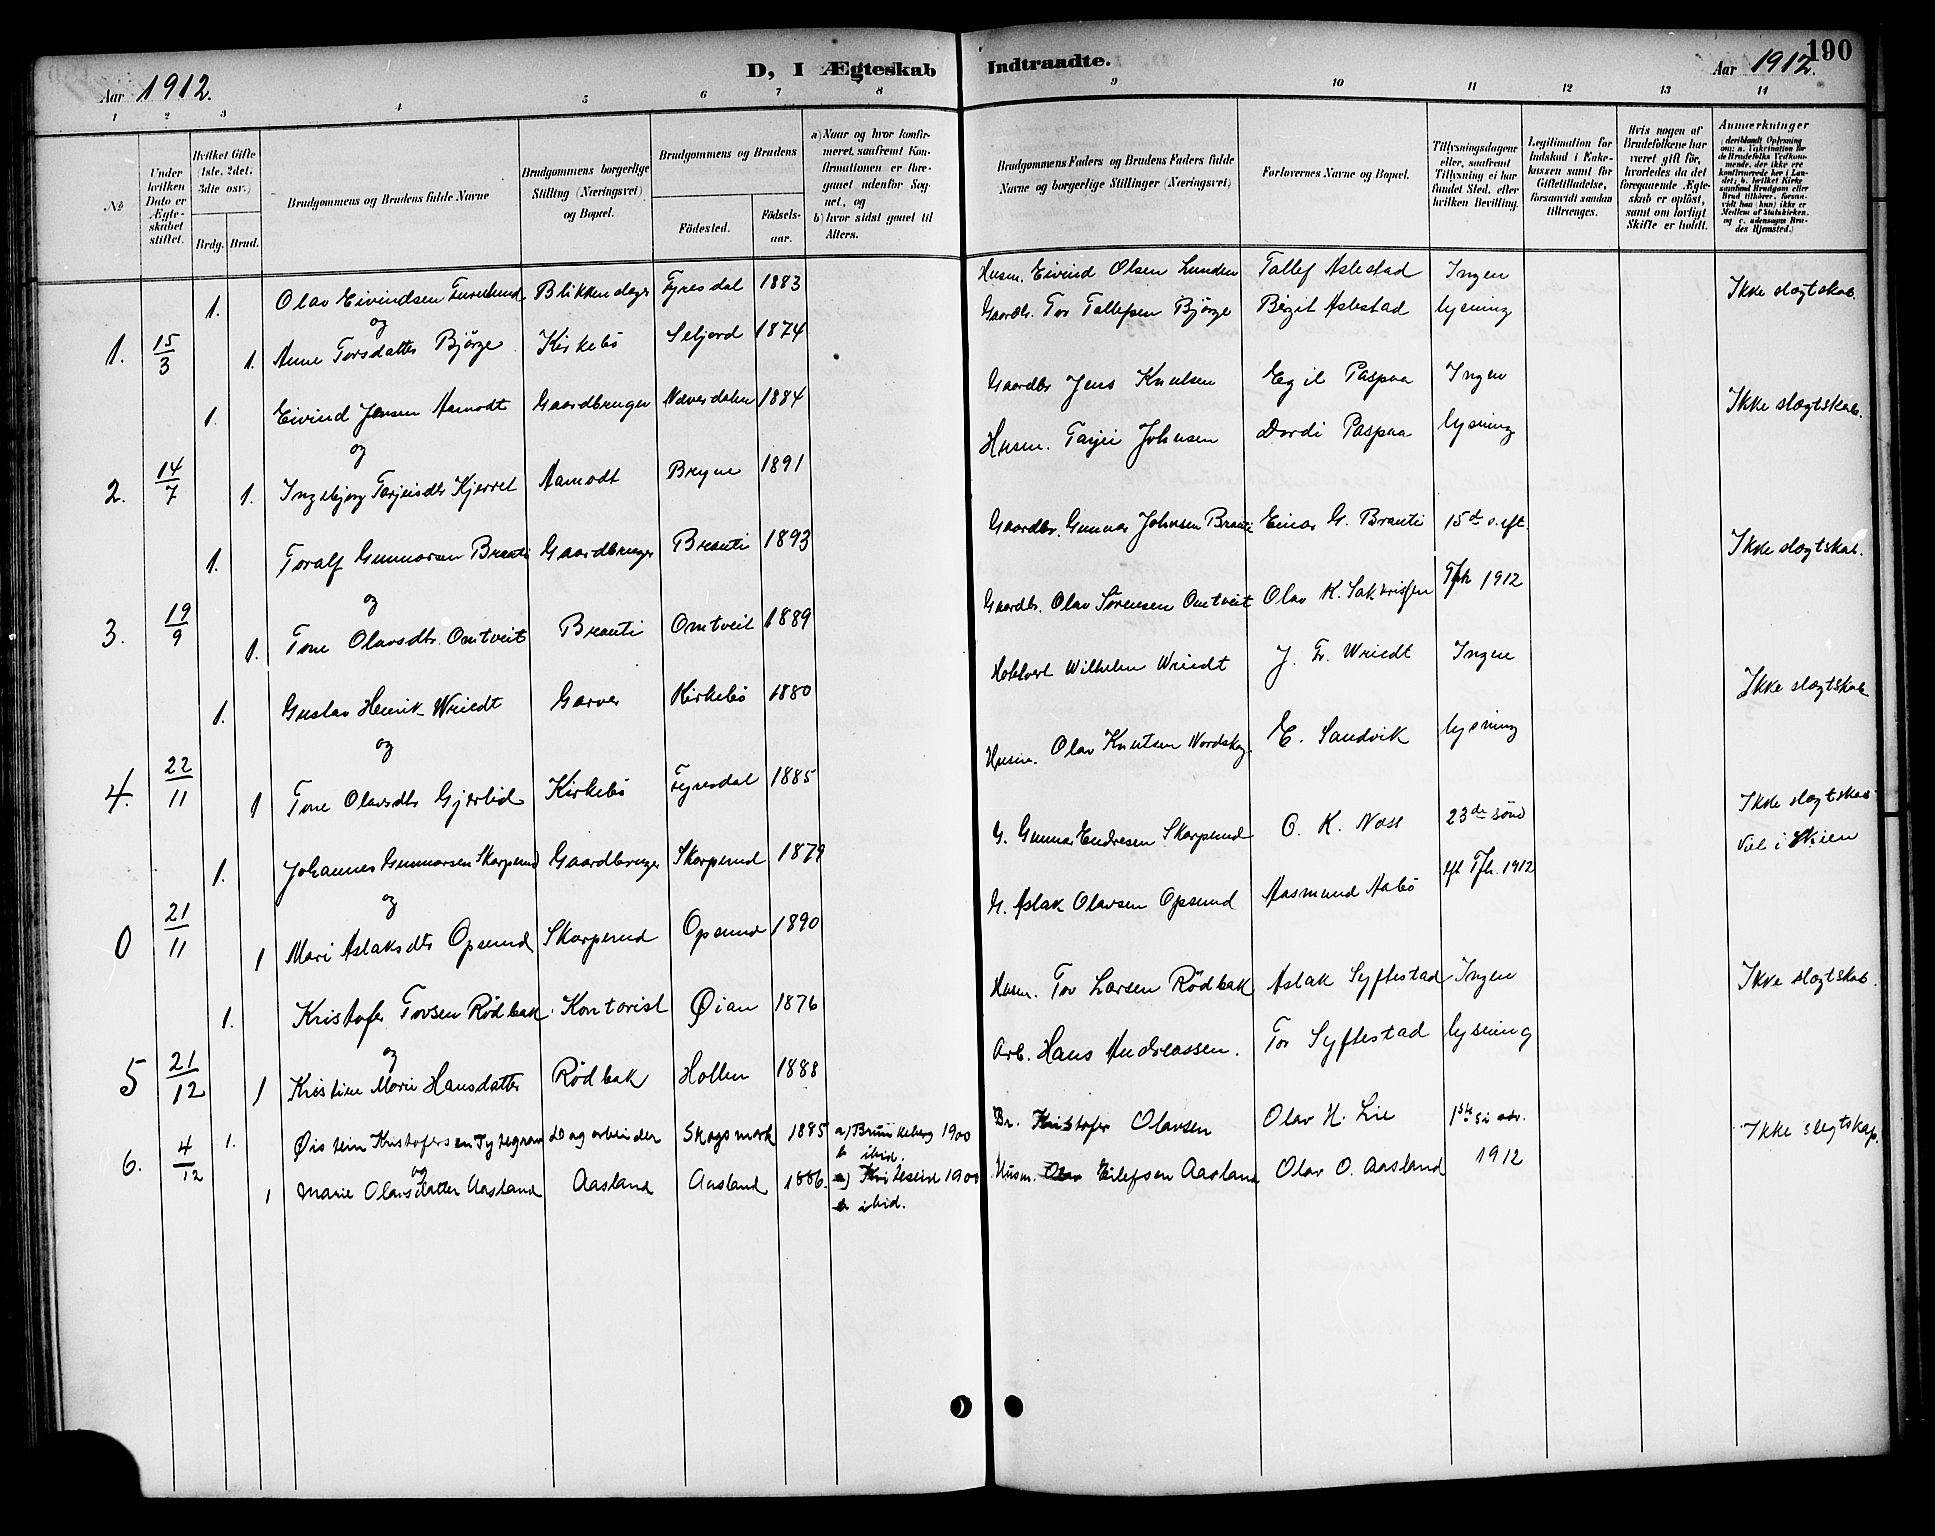 190
Aar 1912.
D, I Ægteskab
Indtraadte.
Aar 1912.
1 2 3 4 5 6 7 8
9 10 11 12 13 14
№
Under hvilken Dato er Ægteskabet stiftet.
Hvilket Gifte (1ste, 2det, 3die osv.)
Brdg. Brud.
Brudgommens og Brudens fulde Navne
Brudgommens borgerlige Stilling (Næringsvei) og Bopæl.
Brudgommens og Brudens
Fødested.
Fødselsaar.
a) Naar og hvor konfirmeret, saafremt Konfirmationen er foregaaet udenfor Sognet, og
b) hvor sidst gaaet til Alters.
Brudgommens Faders og Brudens Faders fulde Navne og borgerlige Stillinger (Næringsvei)
Forlovernes Navne og Bopæl.
Tillysningsdagene eller, saafremt Tillysning ei har fundet Sted, efter hvilken Bevilling.
Legitimation for Indskud i Enkekassen samt for Giftetilladelse, forsaavidt saadan tiltrænges.
Hvis nogen af Brudefolkene har været gift før, hvorledes da det foregaaende Ægteskab er opløst, samt om lovligt Skifte er holdt.
Anmærkninger
(deriblandt Oplysning om: a. Vakcination for de Brudefolks Vedkommende, der ikke ere konfirmerede her i Landet; b. hvilket Kirkesamfund Brudgom eller Brud tilhører, forsaavidt han (hun) ikke er Medlem af Statskirken, og c. udensogns Brudes Hjemsted.)
1. Olav Eivindsen Blikkenslager Fyresdal 1883 Husm. Eivind Olsen Lunden Tallef Aslestad Ingen Ikke slægtskab.
og
1. 15/3 1. Anne Torsdatter Bjørge Kirkebø Seljord 1874 Gaardbr. Tor Tallefsen Bjørge Bergit Aslestad lysning
1. Eivind Jensen Aamodt Gaardbruger Næverdalen 1884 Gaardbr Jens Knutsen Egil Paspaa Ingen Ikke slægtskab.
og
2. 14/7 1. Ingebjørg Tarjeisdtr Kjerret Aamodt 1891 Husm. Tarjei Johnsen Dordi Paspaa lysning
1. Toralf Gunnarsen Brauti Gaardbruger Brauti 1893 Gaardbr. Gunnar Johnsen Brauti Einar G. Brauti 15de s. eft. Ikke slægtskab.
og
3. 19/9 1. Tone Olavsdtr. Omtveit Brauti Omtveit 1889 Gaardbr. Olav Sørensen Omtveit Olav K. Tfh 1912
1. Gustav Henrik Wriedt Garver Kirkebø 1880 Wilhelm Wriedt J. Fr. Wriedt Ingen Ikke slægtskab
og
4. 22/11 1 Tone Olavsdtr Gjerlid Kirkebø Fyresdal 1885 Husm. Olav Knutsen Nordskog E. Sandvik lysning
1. Johannes Gunnarsen Skarperud Gaardbruger Skarperud 1879 G. Gunnar Endresen Skarperud O. K. Næss 23de sønd Ikke slægtskab
og
0 21/11 1 Mari Aslaksdtr Opsund Skarperud Opsund 1890 G. Aslak Olavsen Opsund Aasmund Aabø eft Tfh. 1912 Viet i
1. Kristofer Torsen Rødbak Kontorist Øian 1876 Husm. Tov Larsen Rødbak Aslak Syftestad Ingen Ikke slægtskab.
og
5 21/12 1 Kristine Marie Hansdatter Rødbak Hollen 1888 Arb. Hans Andreassen. Tor Syftestad lysning
1. Øistein Kristofersen Dagarbeider Skogsmark 1885 a) Brunkeberg 1900 b ibid. Br. Kristofer Olavsen Olav H. Lie 1ste si adv. Ikke slegtskap.
og
6. 4/12 1 Marie Olavsdatter Aasland Aasland Aasland 1886. a) Kviteseid 1900 b ibid. Husm. Olav Eilefsen Aasland Olav O. Aasland 1912